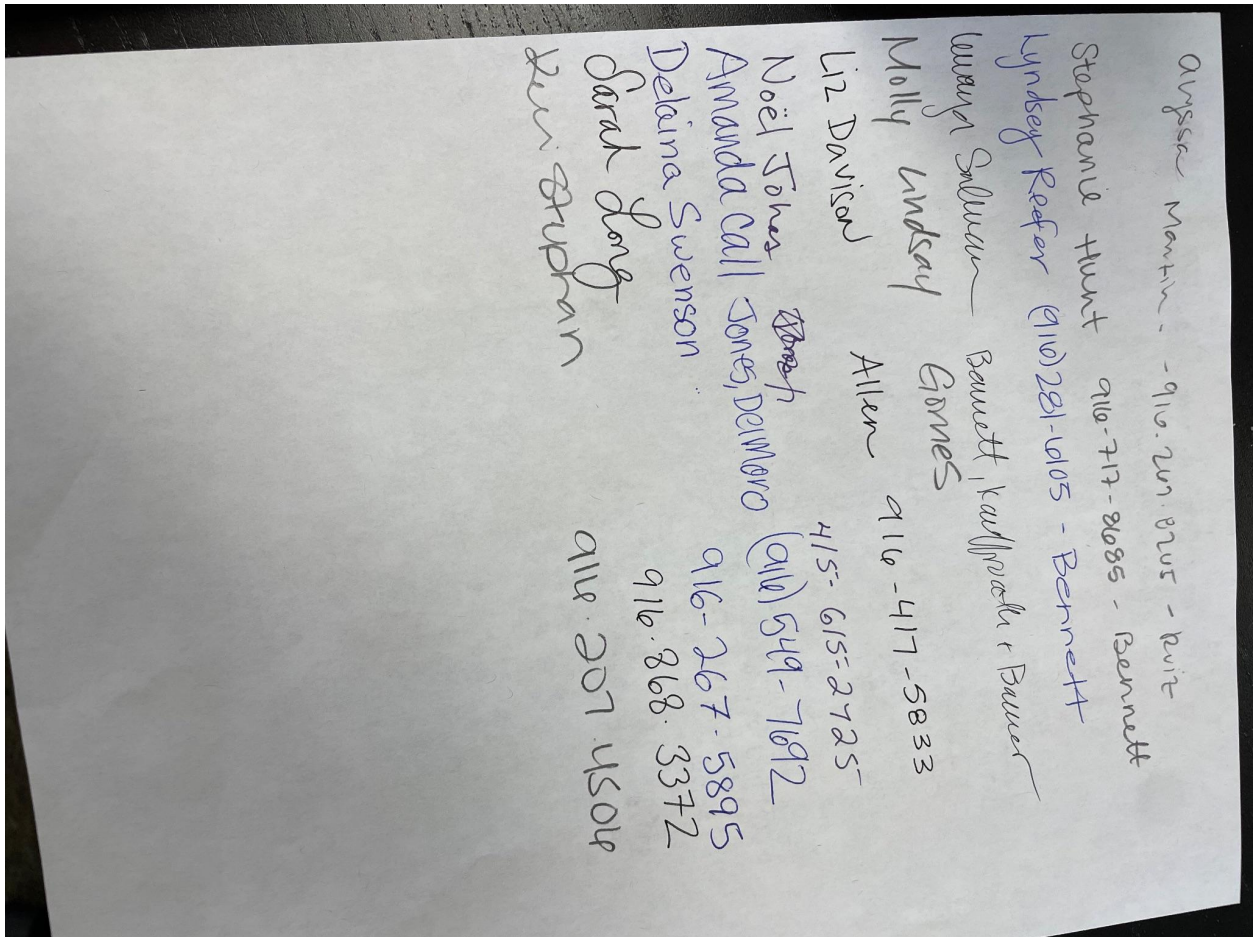 Alyssa Martin - - 916.207.0205 - Ruiz
Stephanie Hunt 916-717-8685 - Bennett
Lyndsey Reefer (916) 281-6105 - Bennett
Salman Bennett, + Banner
Molly Lindsay Gomes
Liz Davison Allen 916-417-5833
Noël Jones 415-615-2725
Amanda Call Jones, Delmoro (916) 549-7692
Delaina Swenson 916-267-5895
Sarah Long 916.868.3372
Stephan 916.207.4506